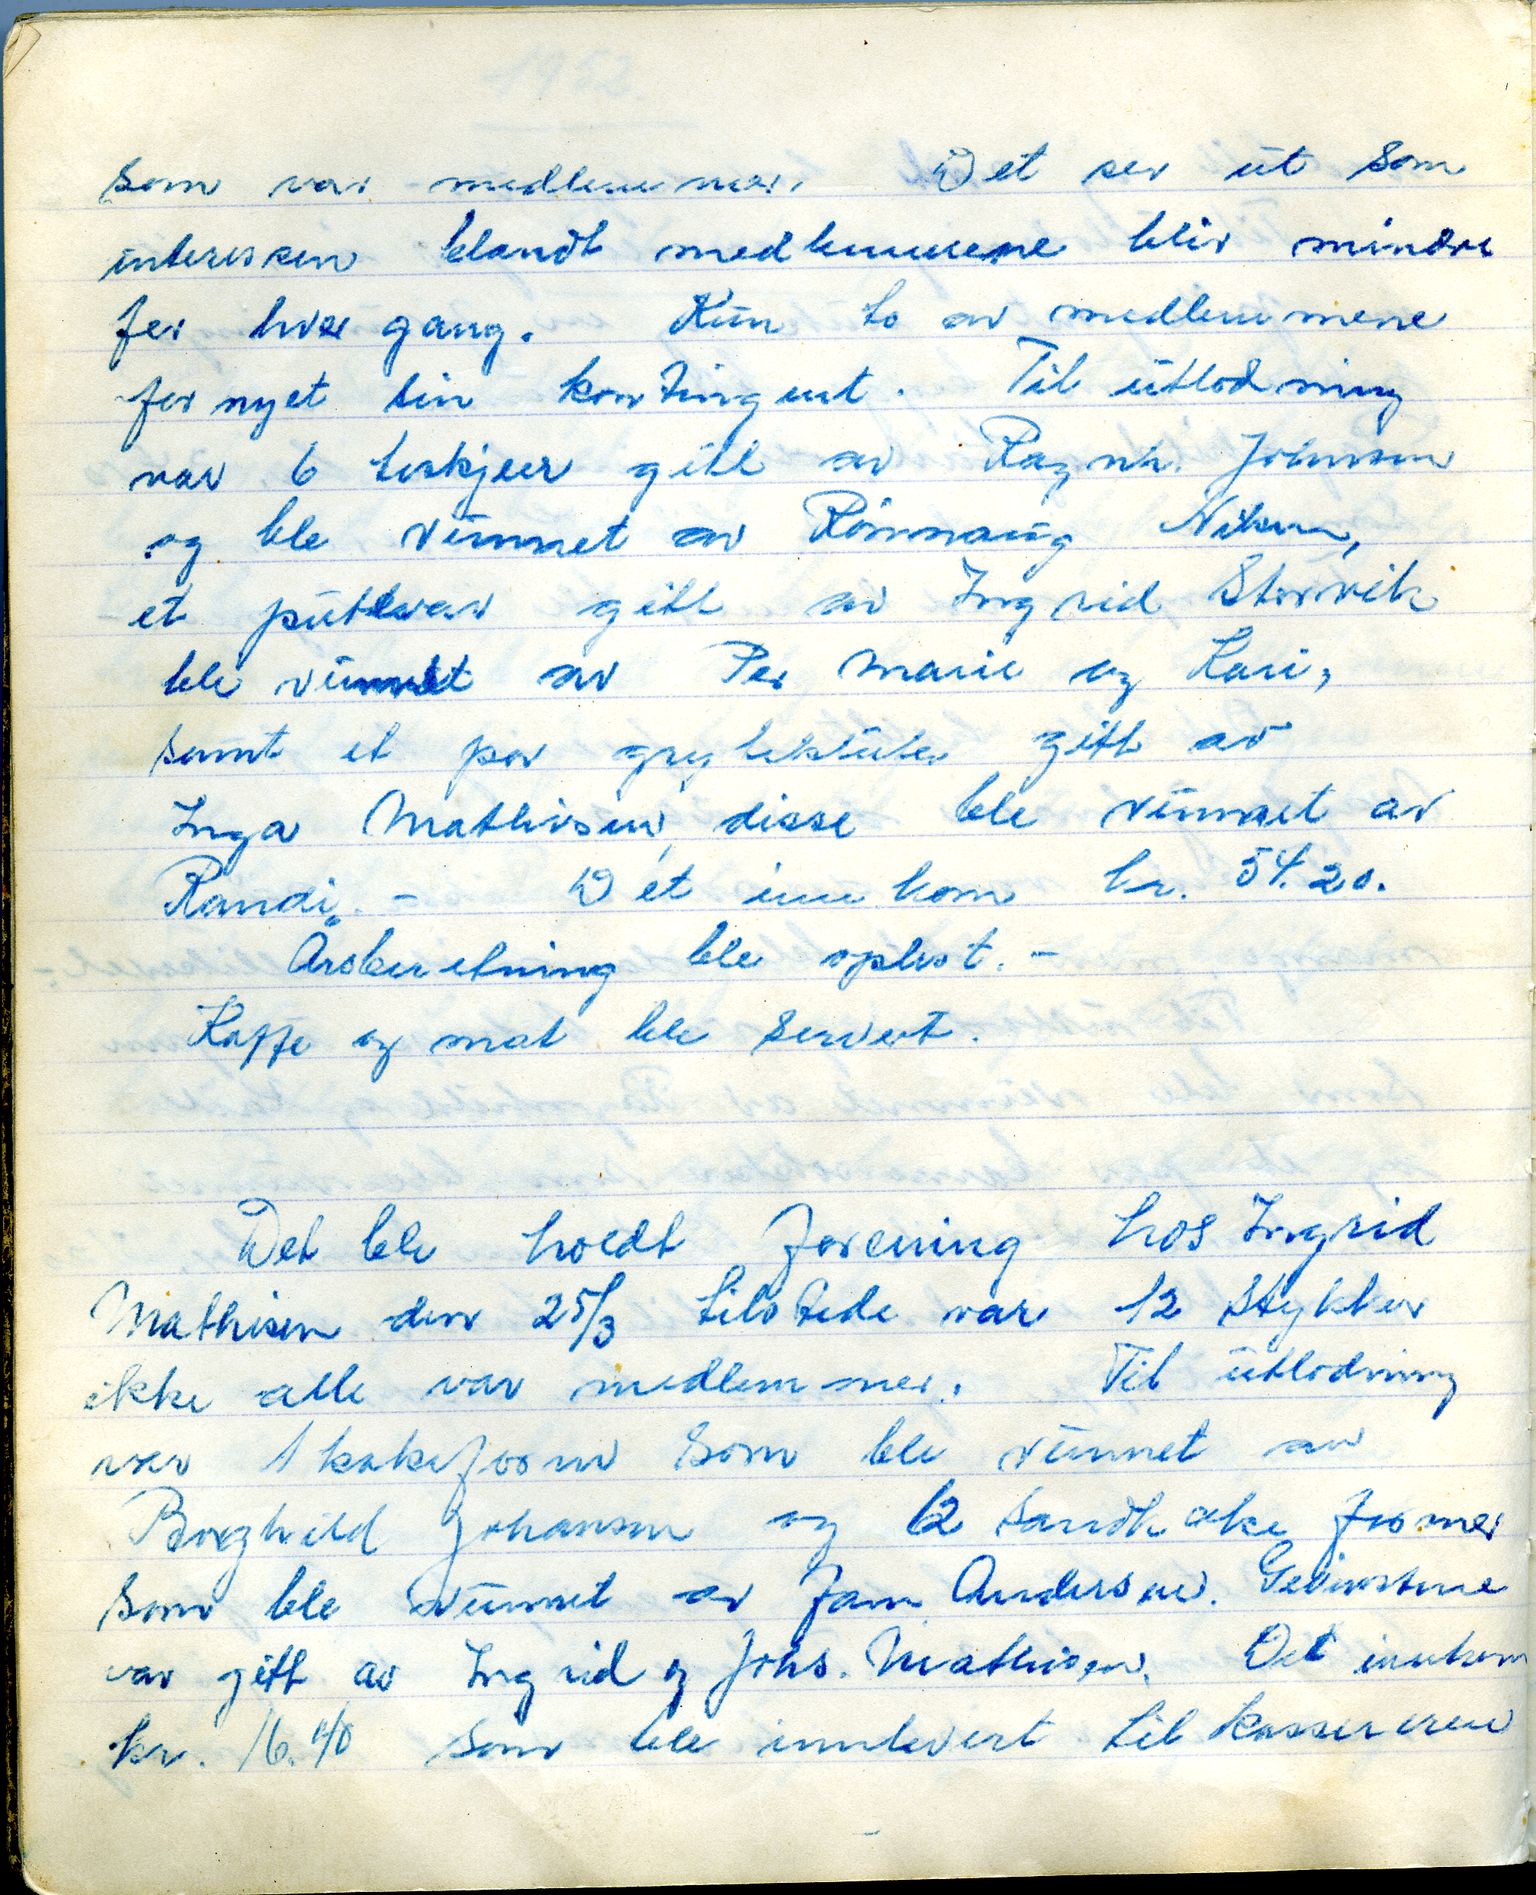 1952.
som var medlemmer. Det ser ut som
interessen blandt medlemmene blir mindre
for hver gang. Kun to av medlemmene
fornyet sin kontingent. Til utlodning
var 6 teskjeer gitt av Ragnh. Johnsen
og ble vunnet av Rønnaug Nilsen,
et putevar gitt av Ingrid Storvik
ble vunnet av Per Marie og Kari,
samt et par grytekluter gitt av
Inga Mathisen, disse ble vunnet av
Randi. - Det innkom kr. 54.20.
Årsberetning ble oplest. -
Kaffe og mat ble servert.
Det ble holdt forening hos Ingrid
Mathisen den 25/3 tilstede var 12 stykker
ikke alle var medlemmer. Til utlodning
var 1 kakeform som ble vunnet av
Borghild Johansen og 12 sandkake former
som ble vunnet av Jam Andersen. Gevinstene
var gitt av Ingrid og Johs. Mathisen. Det innkom
kr. 16.40 som ble innlevert til kassereren